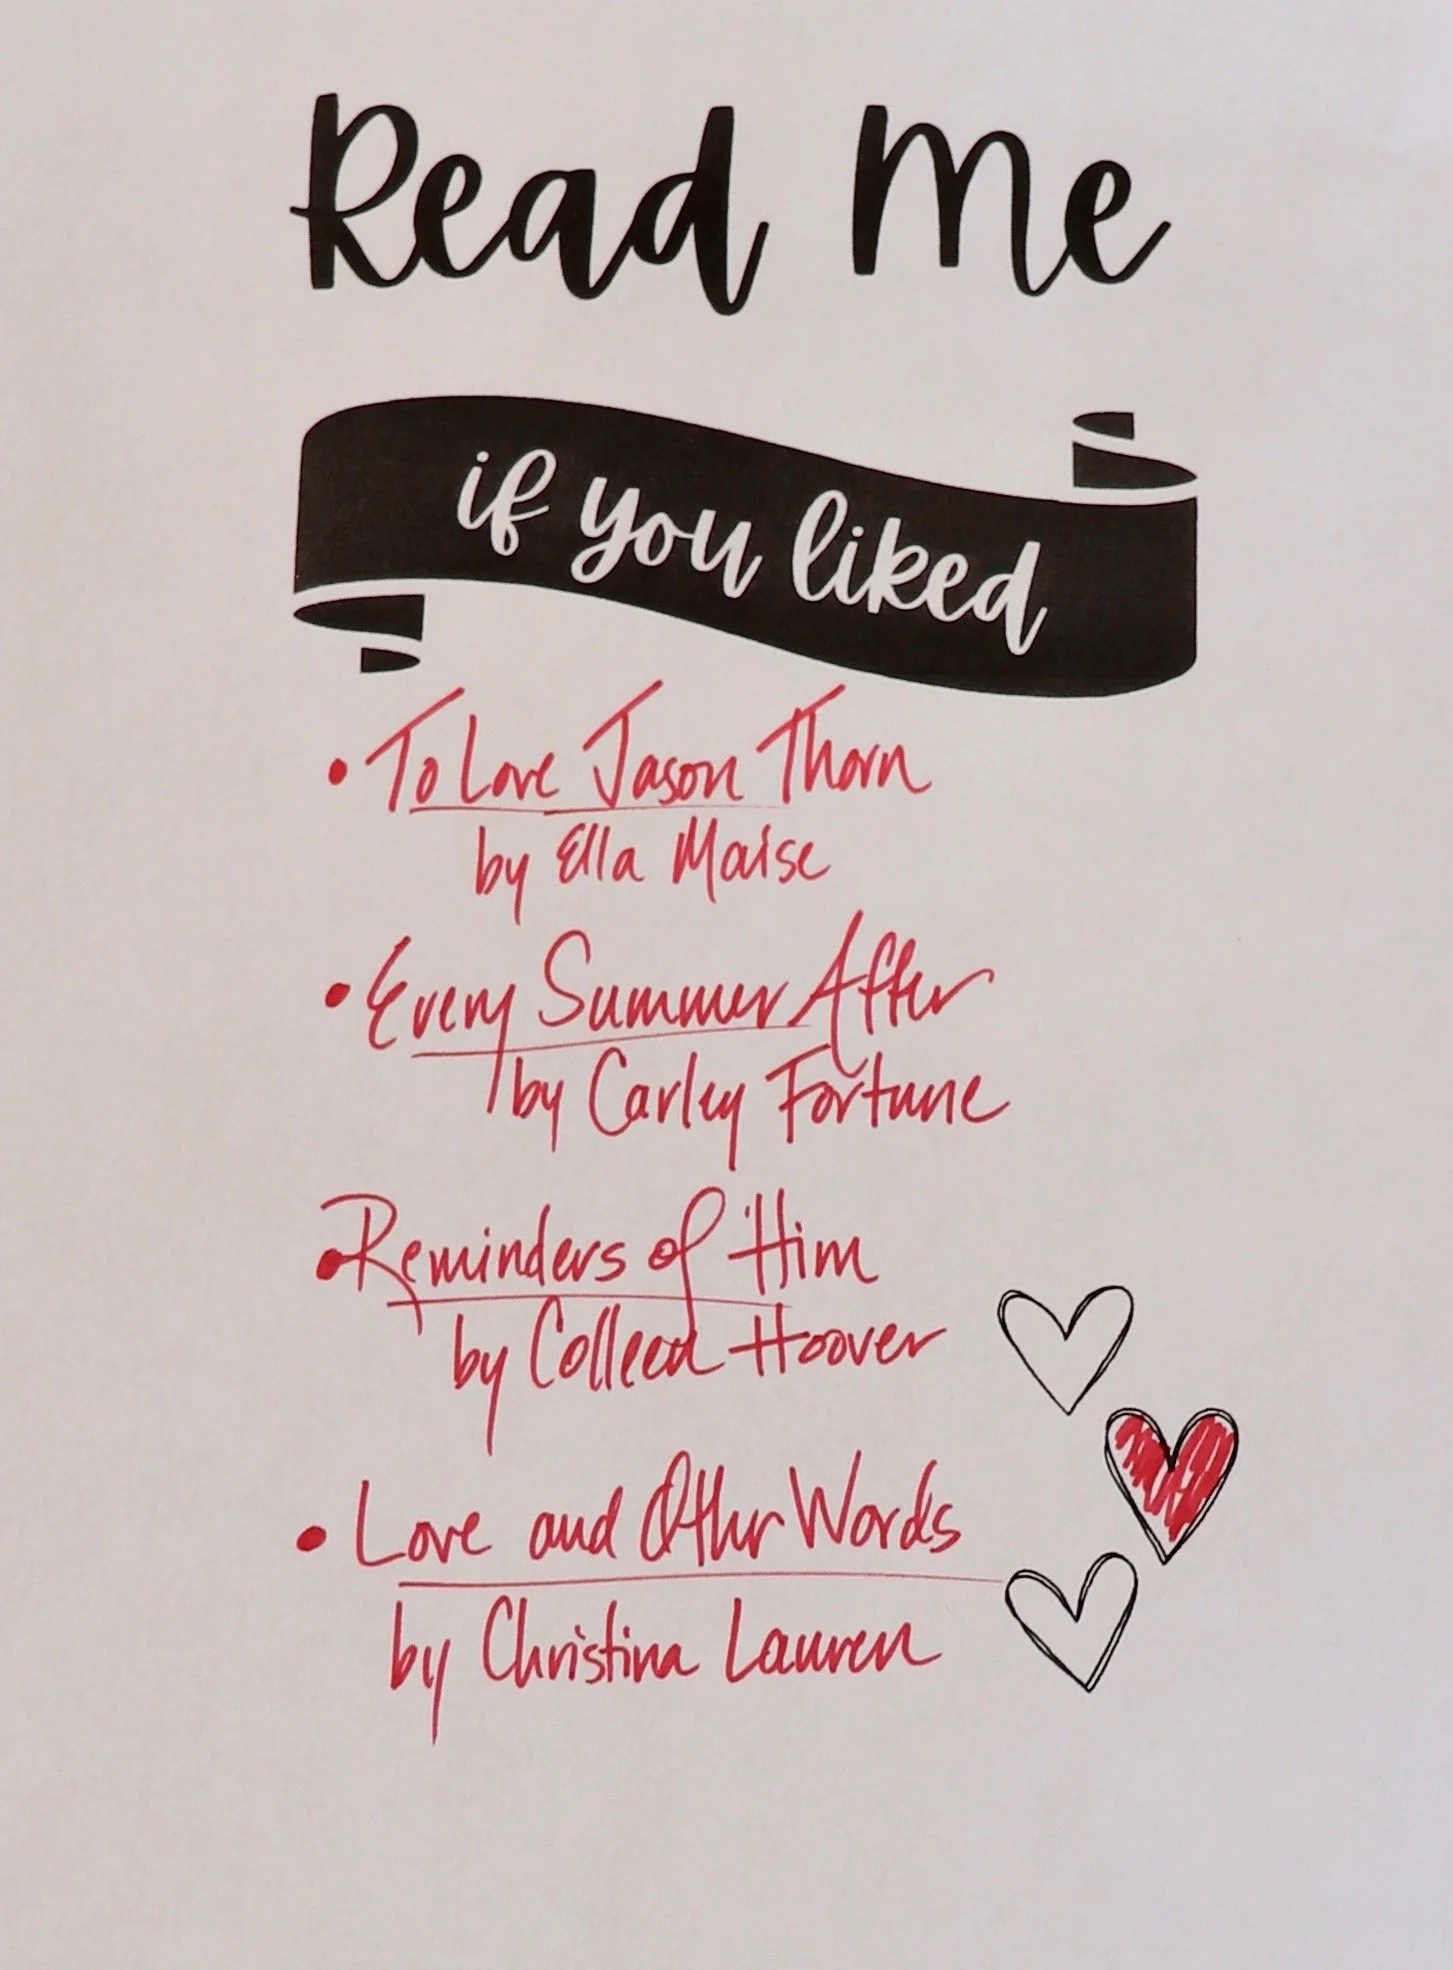 Read Me
if you liked
• To Love Jason Thorn
by Ella Maise
• Every Summer After
by Carley Fortune
• Reminders of Him
by Colleen Hoover
• Love and Other Words
by Christina Lauren